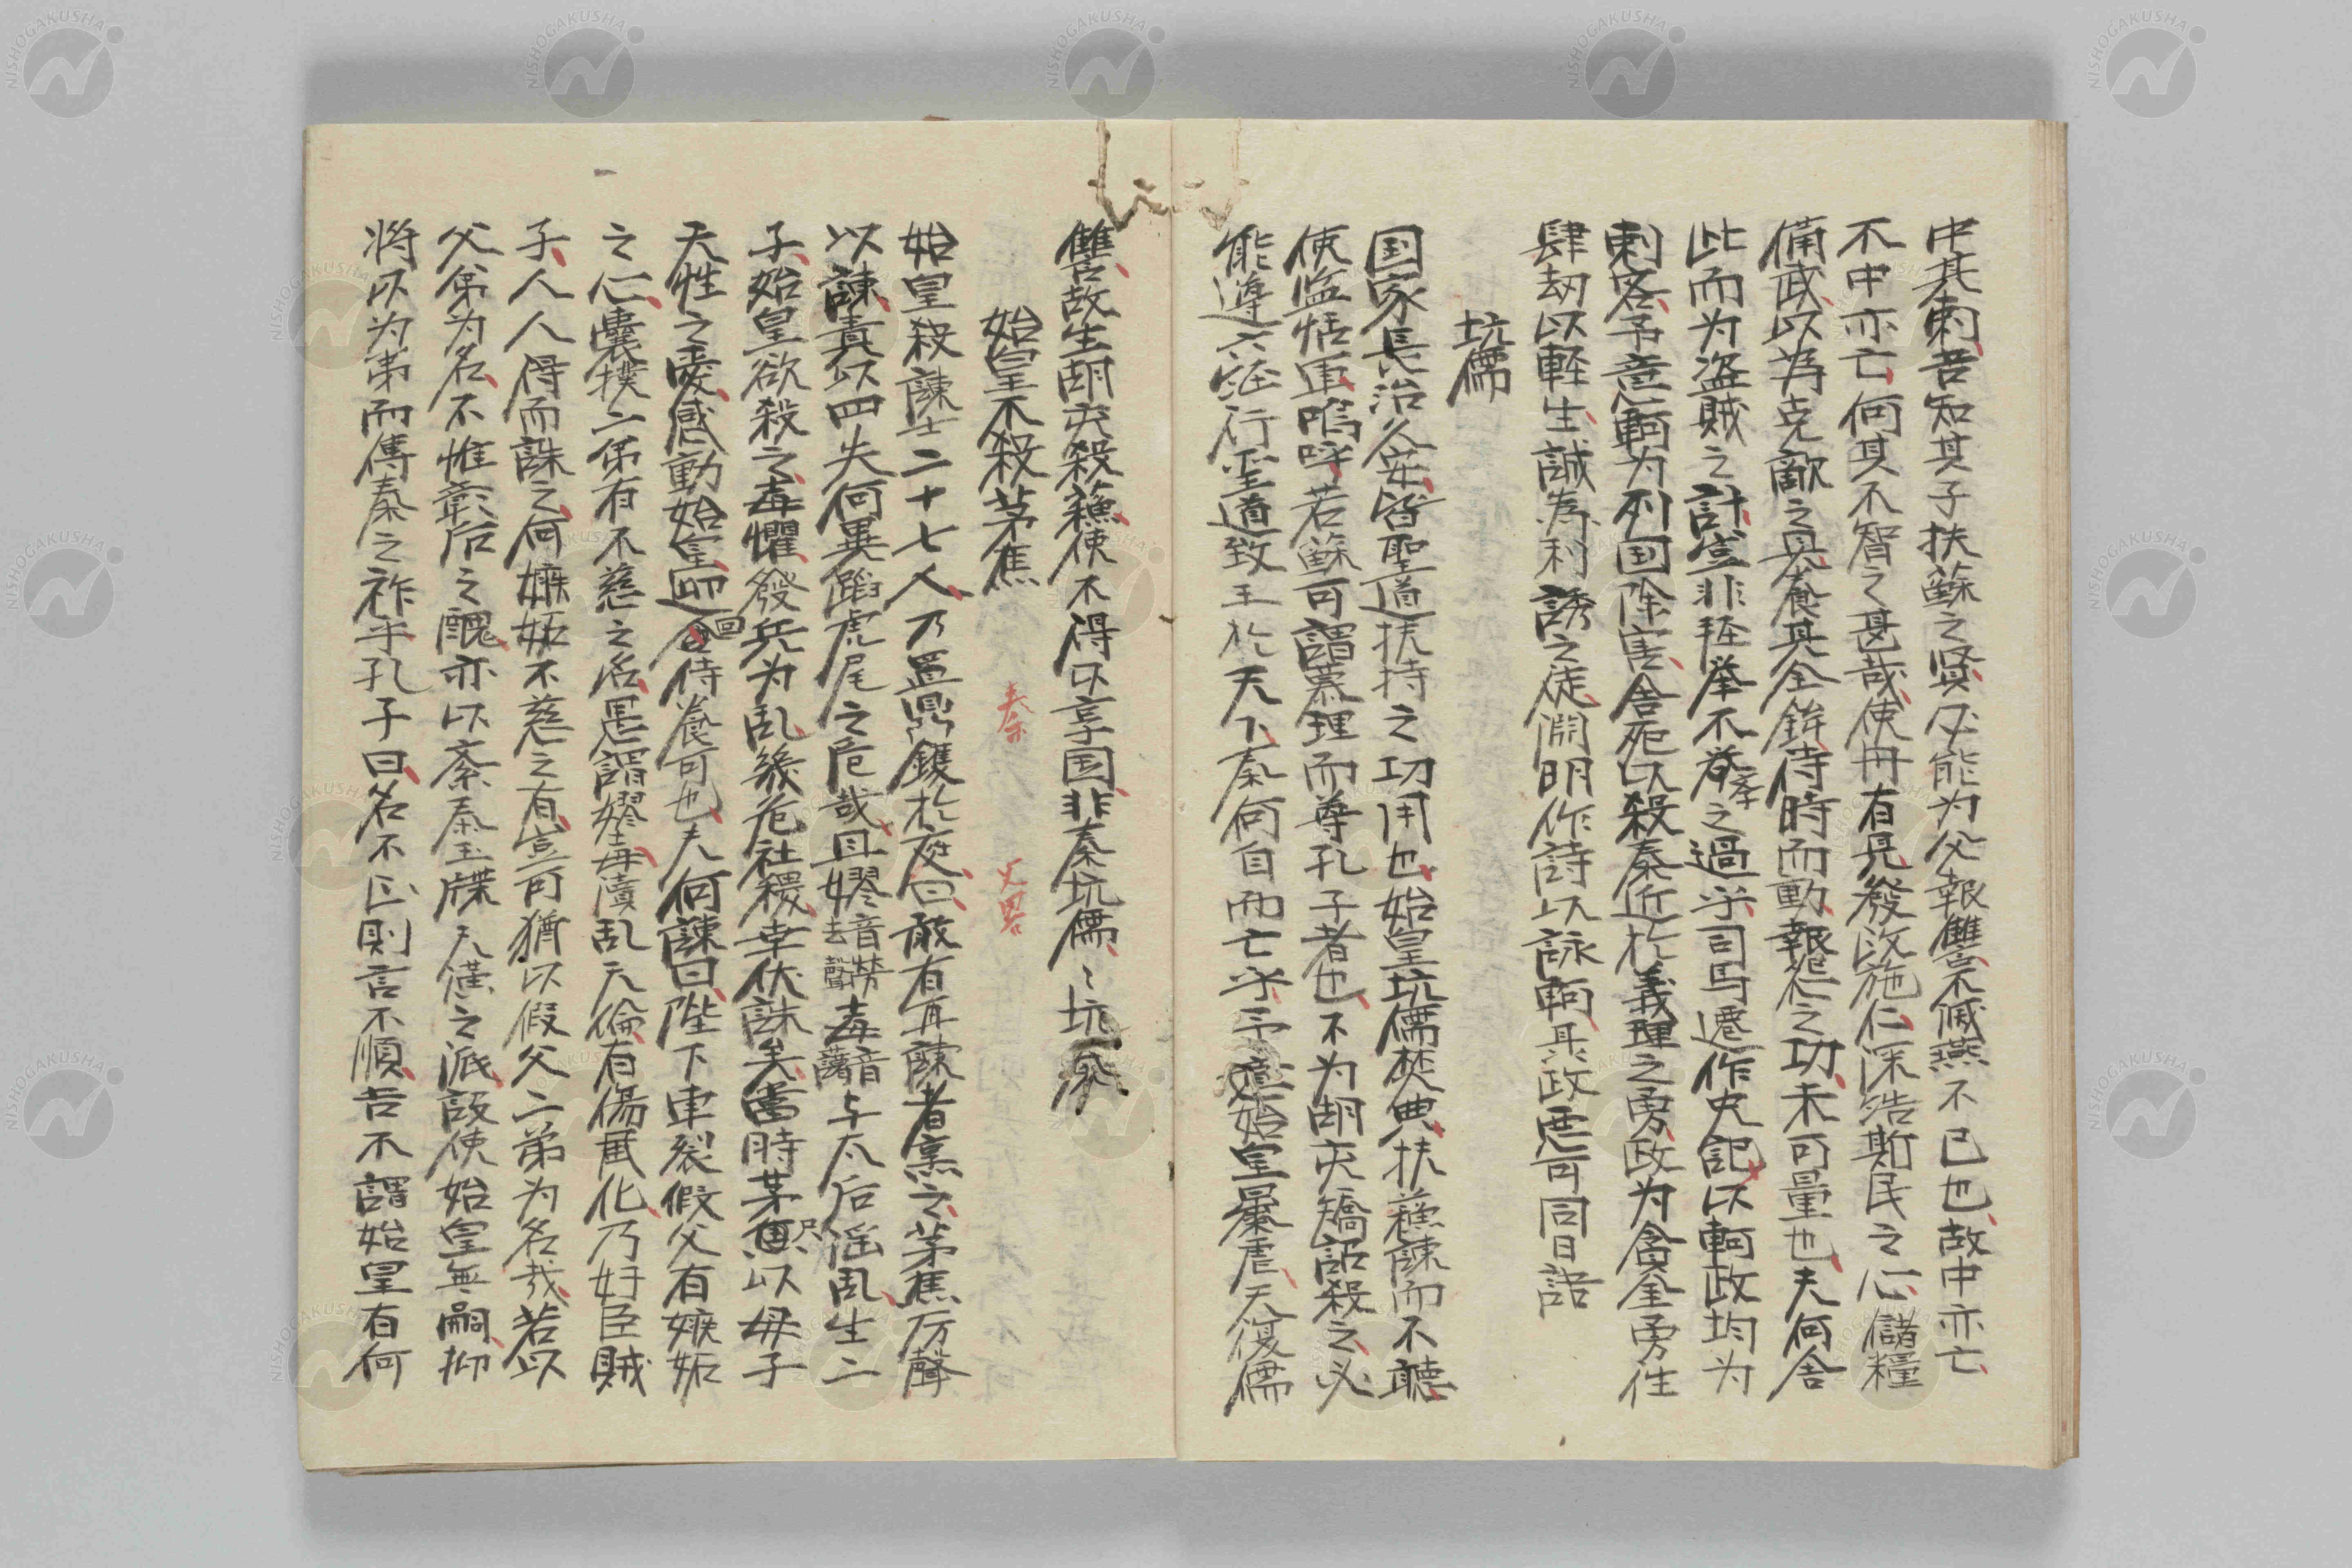 中其刺吾知其子扶蘇之贤必能为父報讐不滅燕不已也故中亦亡
不中亦亡何其不智之甚哉使丹有見發政施仁深結斯民之心儲糧
俻武以為克敵之具養其全鋒待時而動報怨之功未可量也夫何舍
此而为盗賊之計豈非軽挙不孝之過乎司马遷作史記以軻政均为
刺客予意軻为列国除害舎死以殺秦近於義理之勇政为貪金勇往
肆劫以軽生誠為利誘之徒渊明作詩以詠軻與政悪可同日語
坑儒
国家長治久安皆聖道扶持之功用也始皇坑儒焚典扶蘓諫而不聴
使监恬軍嗚呼若蘇可謂慕理而尊孔子者也不为胡亥矯詔殺之必
能遵六経行聖道致王於天下秦何自而亡乎予意始皇暴虐天復儒
讐故生胡亥殺蘓使不得以享国非秦坑儒〻坑秦
始皇不殺茅焦
秦 史畧
始皇殺諫士二十七人乃置鼎鑊於庭曰敢有再諫者烹之茅焦厉聲
以諫責以四失何異蹈虎尾之危哉且嫪音勞去聲毒音藹与太后淫乱生二
子始皇欲殺之毒懼發兵为乱幾危社稷幸伏誅矣當時茅焦只以母子
天性之愛感動始皇迎回侍養可也夫何諫曰陛下車裂假父有嫉妬
之心囊撲二弟有不慈之名是謂嫪毒瀆乱天倫有傷風化乃奸臣賊
子人人得而誅之何嫉妬不慈之有豈可猶以假父二弟为名哉若以
父弟为名不惟彰后之醜亦以紊秦玉牒天潢之派設使始皇無嗣抑
将以为弟而傳秦之祚乎孔子曰名不正則言不順吾不謂始皇有何